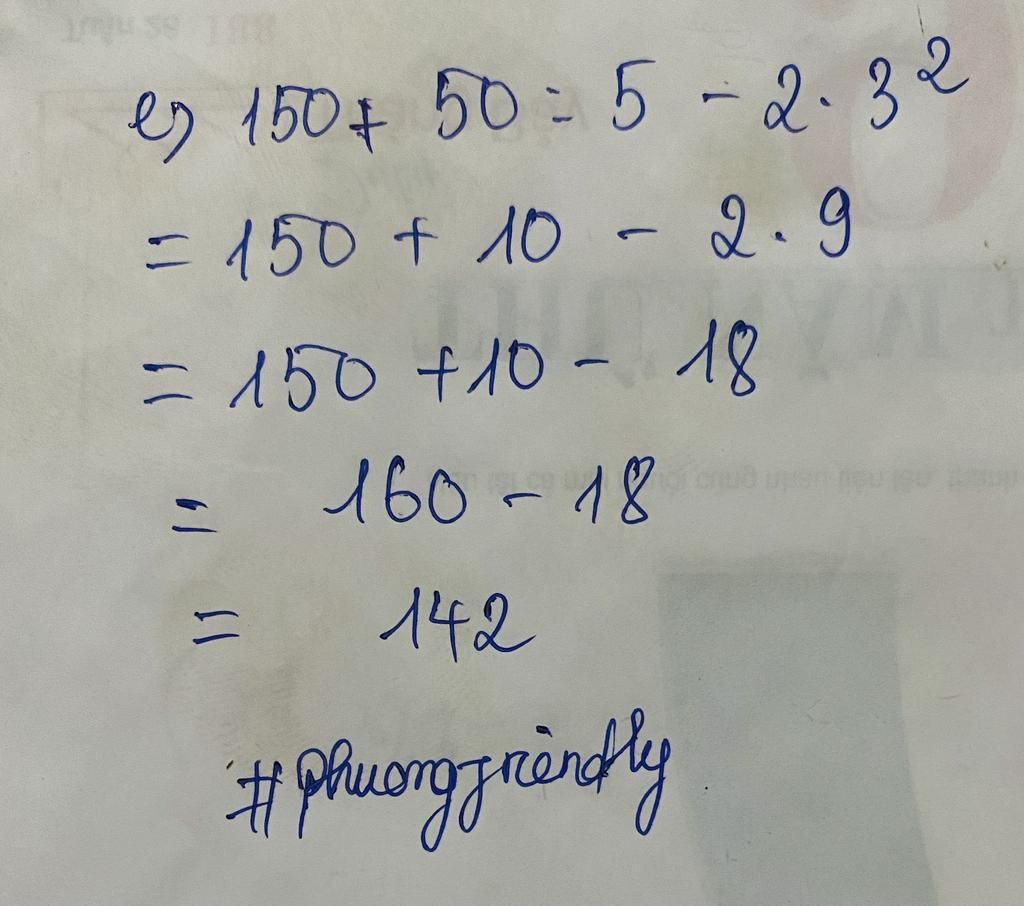 e) 150 + 50 : 5 - 2 . 3²
= 150 + 10 - 2 . 9
= 150 + 10 - 18
= 160 - 18
= 142
#phuongfriendly